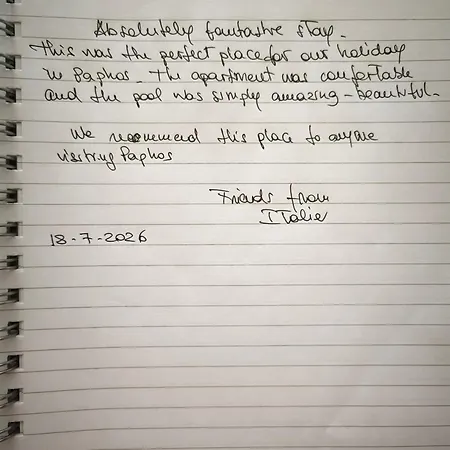 Absolutely fantastic stay.
This was the perfect place for our holiday
in Paphos. The apartment was comfortable
and the pool was simply amazing - beautiful.
We recommend this place to anyone
visiting Paphos
Friends from
Italie
18-7-2026